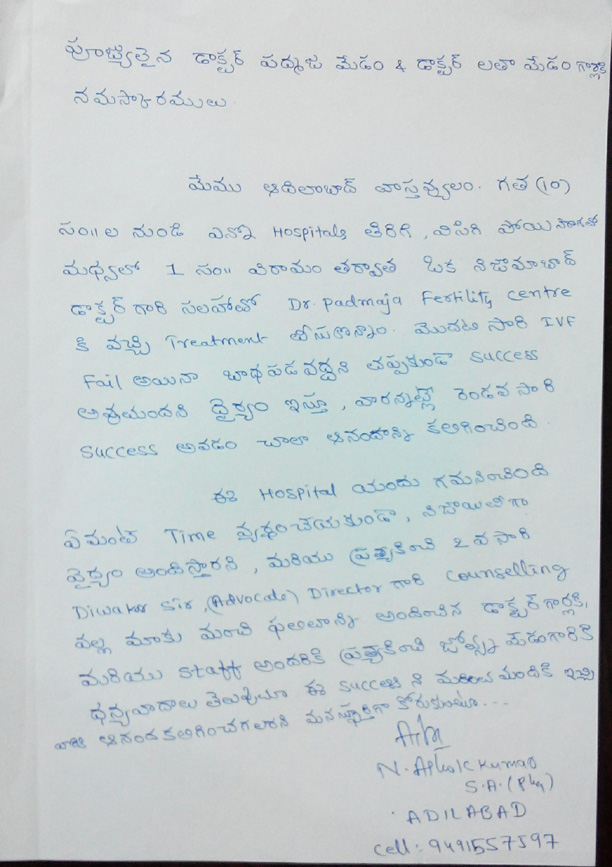 పూజ్యులైన డాక్టర్ పద్మజ మేడం & డాక్టర్ లతా మేడం గార్లకి
నమస్కారములు.
మేము ఆదిలాబాద్ వాస్తవ్యులం. గత (10)
సం॥ల నుండి ఎన్నో Hospitals తిరిగి, విసిగి పోయి
మధ్యలో 1 సం॥ విరామం తర్వాత ఒక నిజామాబాద్
డాక్టర్ గారి సలహాతో Dr. Padmaja Fertility centre
కి వచ్చి Treatment తీసుకొన్నాం. మొదటి సారి IVF
Fail అయినా బాధపడవద్దని తప్పకుండా success
అవుతుందని ధైర్యం ఇస్తూ, వారన్నట్లే రెండవ సారి
success అవడం చాలా ఆనందాన్ని కలిగించింది.
ఈ Hospital యందు గమనించింది
ఏమంటే Time వ్యర్థంచేయకుండా, నిజాయితీగా
వైద్యం అందిస్తారని, మరియు ప్రత్యేకించి 2వ సారి
Diwakar Sir, (Advocate) Director గారి counselling
వల్ల మాకు మంచి ఫలితాన్ని అందించిన డాక్టర్ గార్లకి,
మరియు staff అందరికి ప్రత్యేకించి జ్యోత్స్న మేడంగారికి
ధన్యవాదాలు తెలుపుతూ ఈ success ని మరింత మందికి ఇచ్చి
వారికి ఆనందం కలిగించగలరని మనస్ఫూర్తిగా కోరుకుంటూ...
N. Ashok Kumar
S.A. (Phy)
ADILABAD
cell: 9491557597